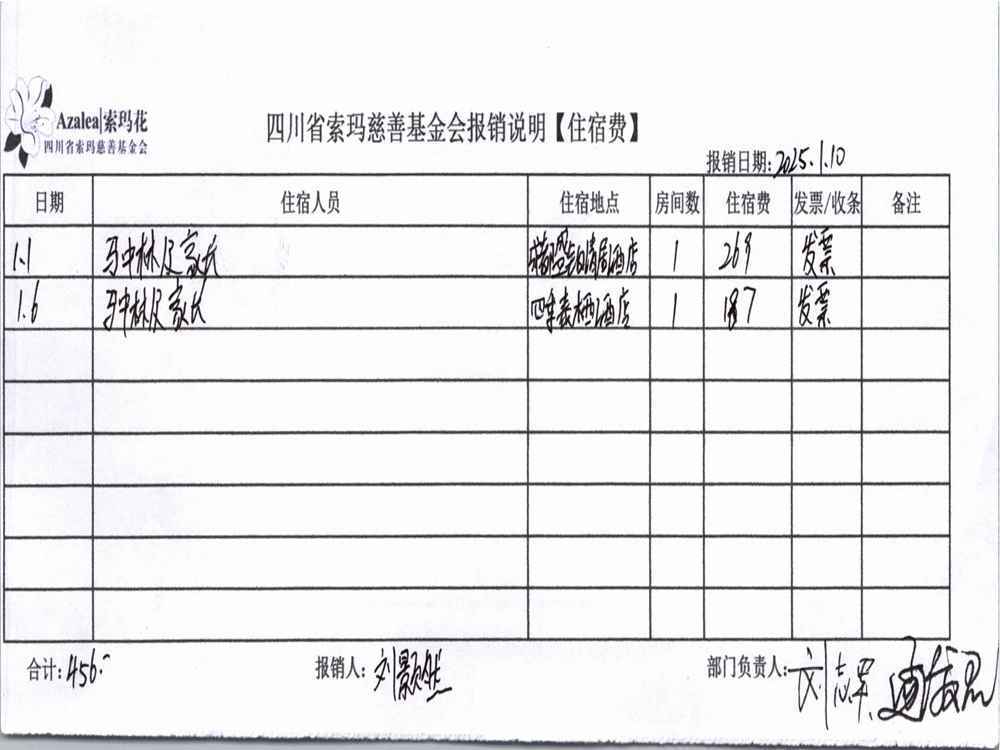 Azalea|索玛花
四川省索玛慈善基金会
四川省索玛慈善基金会报销说明【住宿费】
报销日期: 2025.1.10
日期 住宿人员 住宿地点 房间数 住宿费 发票/收条 备注
1.1 马中林及家长 酒店 1 269 发票
1.6 马中林及家长 四季 栖酒店 1 187 发票
合计: 456.- 报销人: 刘颢然 部门负责人: 刘志军